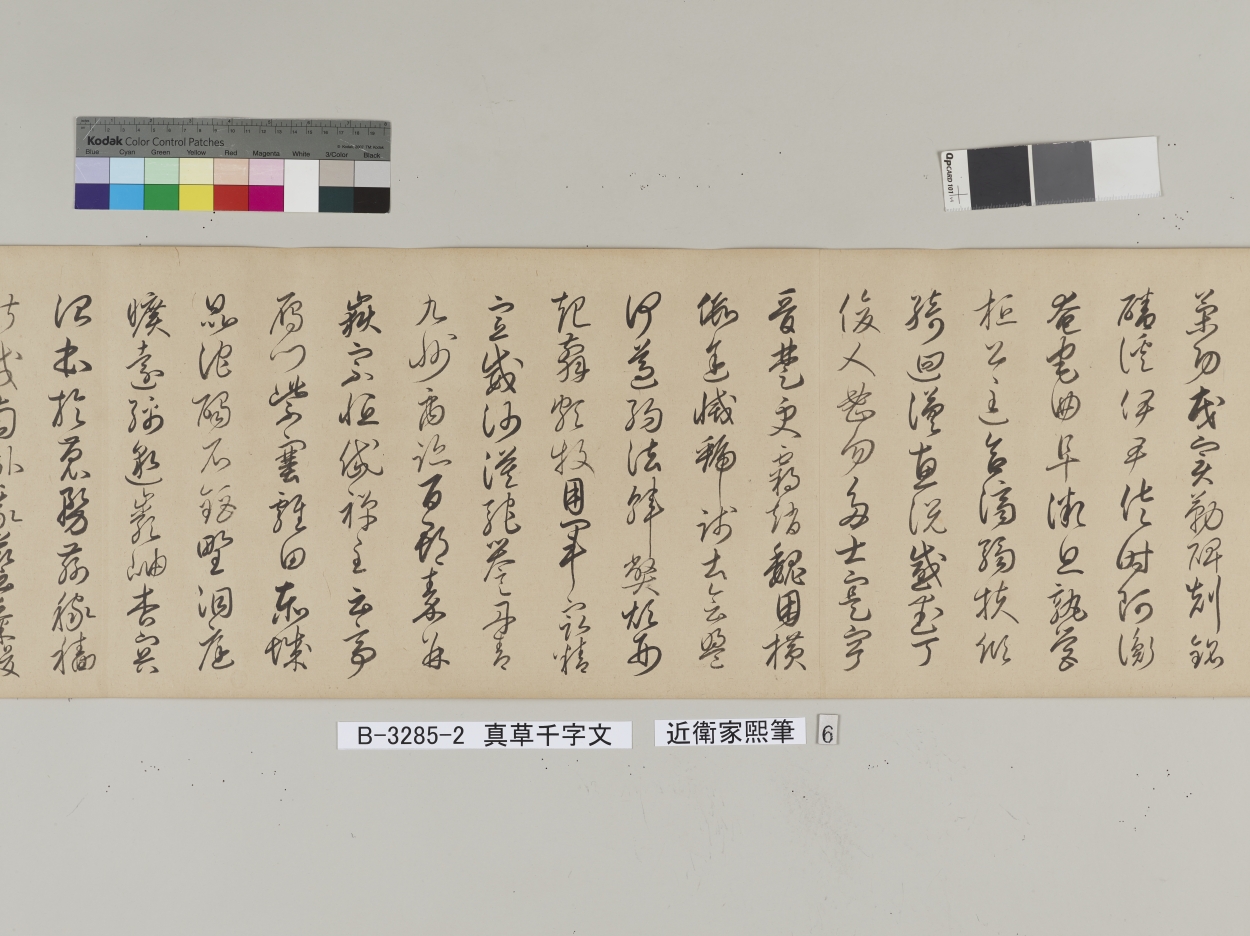 Kodak Color Control Patches
Blue Cyan Green Yellow Red Magenta White 3/Color Black
QPCARD 101
策功茂實勒碑刻銘
磻溪伊尹佐時阿衡
奄宅曲阜微旦孰營
桓公匡合濟弱扶傾
綺迴漢惠說感武丁
俊乂密勿多士寔寧
晉楚更霸趙魏困橫
假途滅虢踐土會盟
何遵約法韓弊煩刑
起翦頗牧用軍最精
宣威沙漠馳譽丹青
九州禹跡百郡秦并
嶽宗恒岱禪主云亭
雁門紫塞雞田赤城
昆池碣石鉅野洞庭
曠遠綿邈巖岫杳冥
治本於農務茲稼穡
俶載南畝我藝黍稷
B-3285-2 真草千字文 近衛家熙筆 6